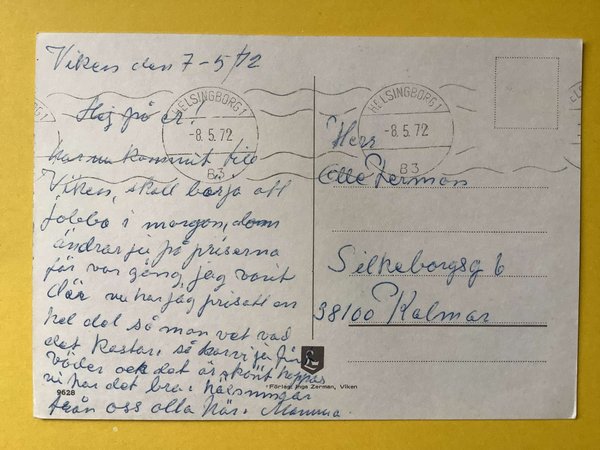 Viken den 7-5/72
Hej på er!
har nu kommit till
Viken, skall börja att
jobba i morgon, dom
ändrar ju på priserna
för var gång, jag varit
där nu har jag prisat en
hel del så man vet vad
det kostar. så har vi ju fin
väder och det är skönt hoppas
ni har det bra. hälsningar
från oss alla här. Mamma.
9628
HELSINGBORG 1
-8.5.72
B3
HELSINGBORG 1
-8.5.72
B3
Herr
Olle Zerman
Silkeborgsg 6
38100 Kalmar
Förlag: Inga Zerman, Viken